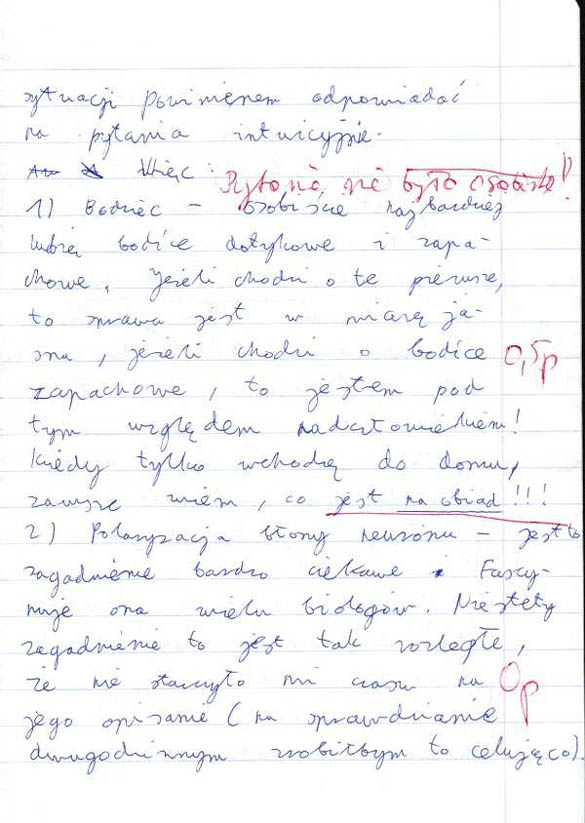 sytuacji powinienem odpowiadać
na pytania intuicyjnie.
Więc :
Pytanie nie było osobiste!!
1) Bodziec – osobiście najbardziej
lubię bodźce dotykowe i zapa-
chowe. Jeżeli chodzi o te pierwsze,
to sprawa jest w miarę ja-
sna, jeżeli chodzi o bodźce
0,5p
zapachowe, to jestem pod
tym względem nadczłowiekiem!
Kiedy tylko wchodzę do domu,
zawsze wiem, co jest na obiad!!!
2) Polaryzacja błony neuronu – jest to
zagadnienie bardzo ciekawe. Fascy-
nuje ona wielu biologów. Niestety
zagadnienie to jest tak rozległe,
że nie starczyło mi czasu na
0p
jego opisanie (na sprawdzianie
dwugodzinnym zrobiłbym to celująco).